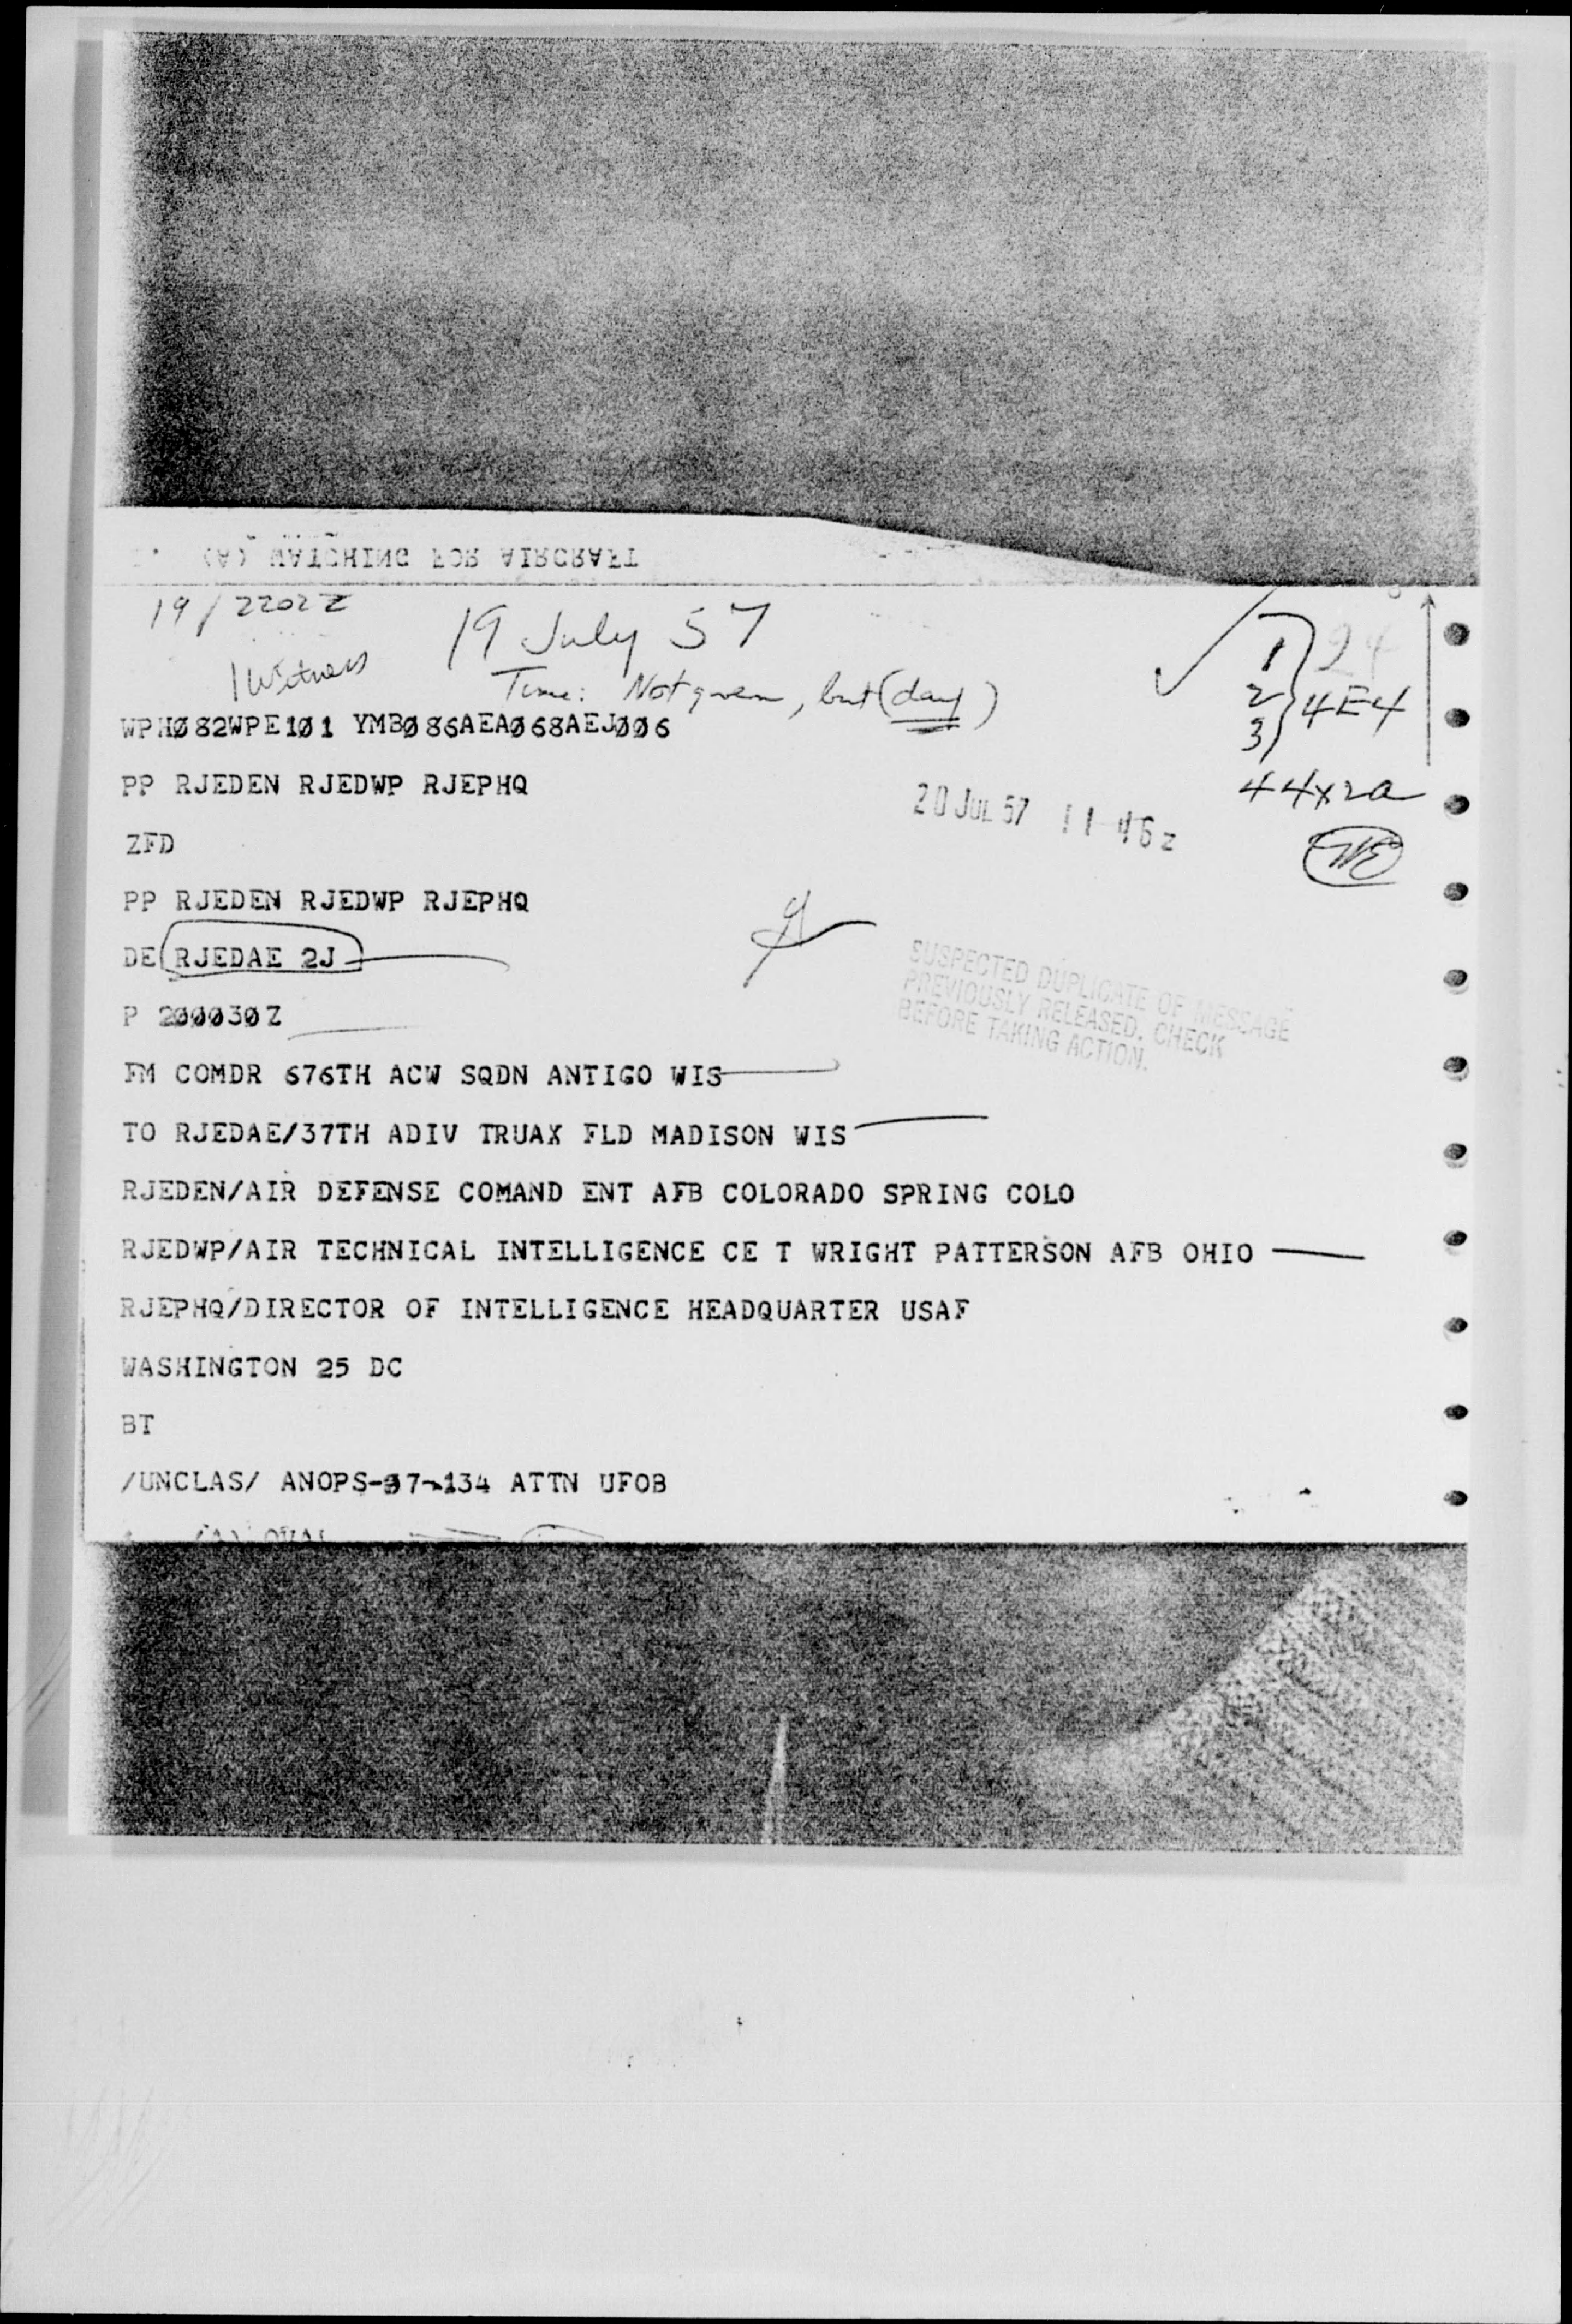 (A) WATCHING FOR AIRCRAFT
19/2202Z
19 July 57
1 Witness
Time: Not given, but (day)
1
2
3
4E4
WPHØ82WPE1Ø1 YMBØ86AEAØ68AEJØØ6
PP RJEDEN RJEDWP RJEPHQ
44x2a
20 JUL 57 11 46z
ZFD
PP RJEDEN RJEDWP RJEPHQ
DE RJEDAE 2J
SUSPECTED DUPLICATE OF MESSAGE
PREVIOUSLY RELEASED. CHECK
BEFORE TAKING ACTION.
P 2ØØØ3ØZ
FM COMDR 676TH ACW SQDN ANTIGO WIS
TO RJEDAE/37TH ADIV TRUAX FLD MADISON WIS
RJEDEN/AIR DEFENSE COMAND ENT AFB COLORADO SPRING COLO
RJEDWP/AIR TECHNICAL INTELLIGENCE CE T WRIGHT PATTERSON AFB OHIO
RJEPHQ/DIRECTOR OF INTELLIGENCE HEADQUARTER USAF
WASHINGTON 25 DC
BT
/UNCLAS/ ANOPS-37-134 ATTN UFOB
(A) OVAL